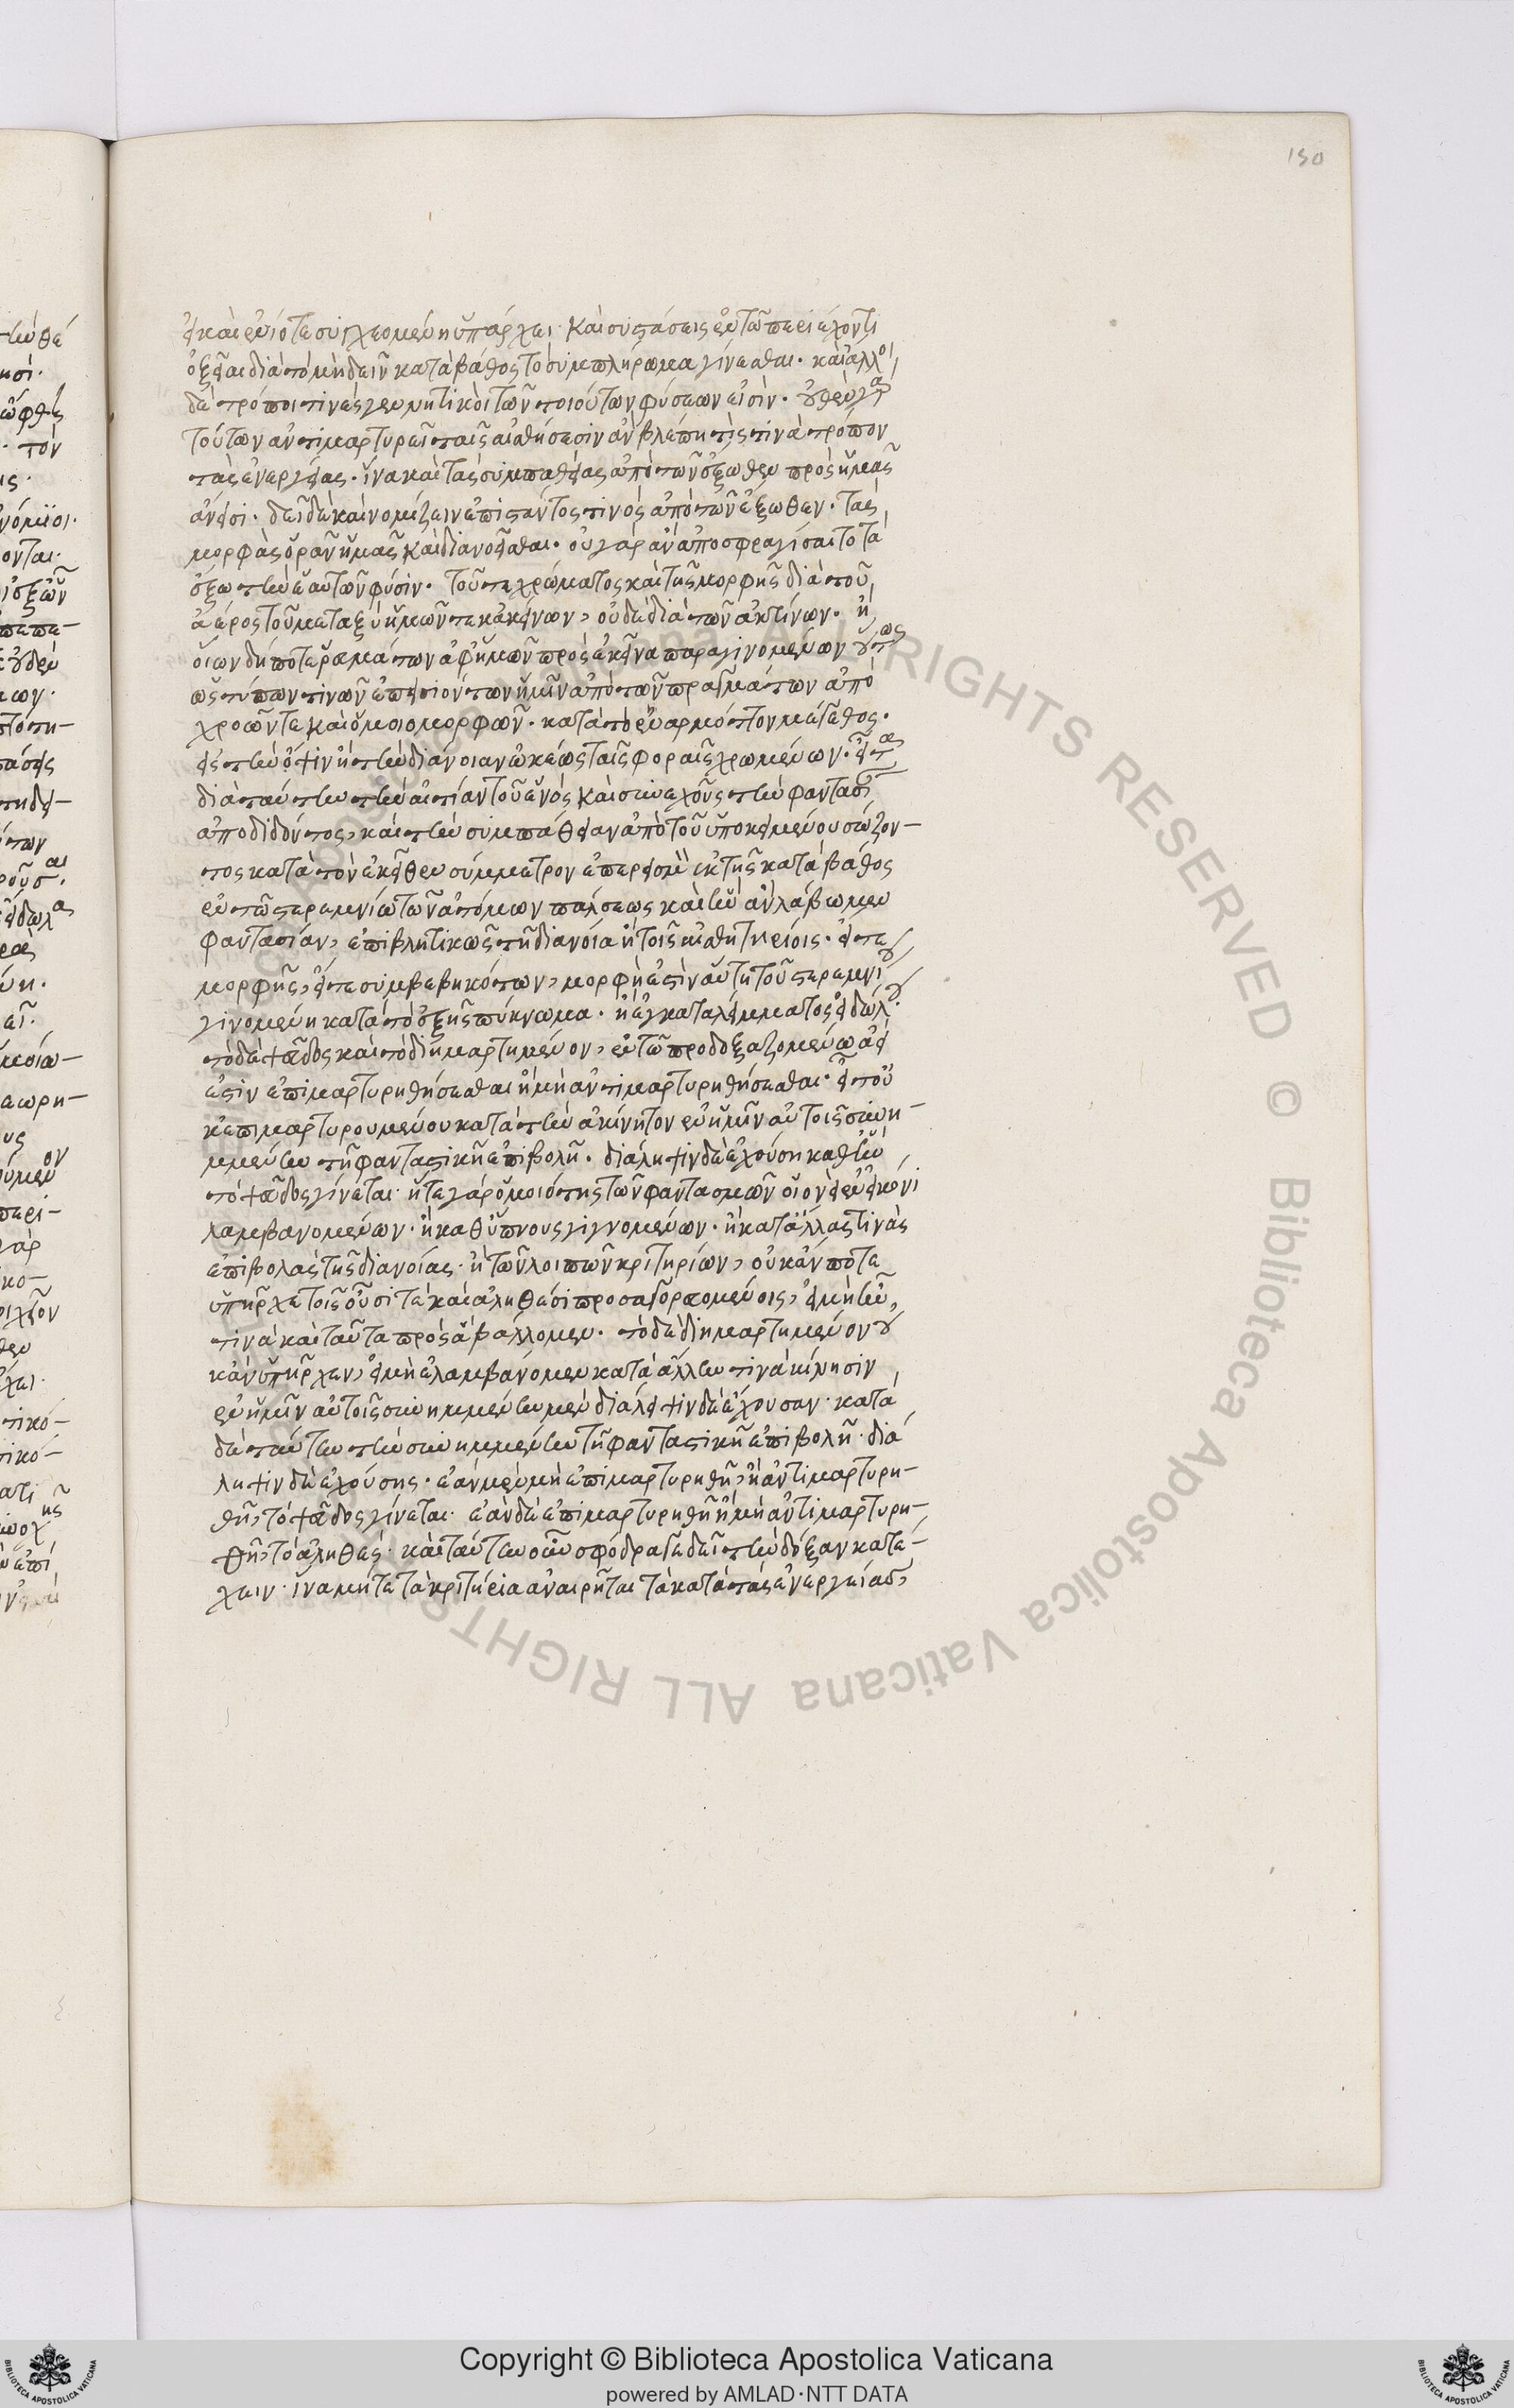 150
εἰ καὶ ἐνίοτε συγχεομένη ὑπάρχει· καὶ συστάσεις ἐν τῷ περιέχοντι
ὀξεῖαι διὰ τὸ μὴ δεῖν κατὰ βάθος τὸ συμπλήρωμα γίνεσθαι. καὶ ἄλλοι
δὲ τρόποι τινὲς γεννητικοὶ τῶν τοιούτων φύσεων εἰσίν. οὐθὲν γὰρ
τούτων ἀντιμαρτυρεῖ ταῖς αἰσθήσεσιν ἂν βλέπῃ τὶς τινὰ τρόπον
τὰς ἐναργείας. ἵνα καὶ τὰς συμπαθείας ἀπὸ τῶν ἔξωθεν πρὸς ἡμᾶς
ἀνοίσει. δεῖ δὲ καὶ νομίζειν ἐπιστάντος τινὸς ἀπὸ τῶν ἔξωθεν. τὰς
μορφὰς ὁρᾶν ἡμᾶς καὶ διανοεῖσθαι. οὐ γὰρ ἂν ἀποσφραγίσαιτο τὰ
ἔξω τὴν ἑαυτῶν φύσιν. τοῦ τε χρώματος καὶ τῆς μορφῆς διὰ τοῦ
ἀέρος τοῦ μεταξὺ ἡμῶν τε κἀκείνων, οὐδὲ διὰ τῶν ἀκτίνων. ἢ
οἵων δήποτε ῥευμάτων ἀφ' ἡμῶν πρὸς ἐκεῖνα παραγινομένων οὕτως
ὡς τύπων τινῶν ἐπεισιόντων ἡμῖν ἀπὸ τῶν πραγμάτων ἀπὸ
χροῶν τε καὶ ὁμοιομόρφων. κατὰ τὸ ἐναρμόττον μέγεθος.
εἰς τὴν ὄψιν ἢ τὴν διάνοιαν ὠκέως ταῖς φοραῖς χρωμένων. εἶτα
διὰ ταύτην τὴν αἰτίαν τοῦ ἑνὸς καὶ συνεχοῦς τὴν φαντασί
ἀποδιδόντος, καὶ τὴν συμπάθειαν ἀπὸ τοῦ ὑποκειμένου σώζον-
τος κατὰ τὸν ἐκεῖθεν σύμμετρον ἐπερεισμὸν ἐκ τῆς κατὰ βάθος
ἐν τῷ στερεμνίῳ τῶν ἀτόμων πάλσεως καὶ ἣν ἂν λάβωμεν
φαντασίαν, ἐπιβλητικῶς τῇ διανοίᾳ ἢ τοῖς αἰσθητηρίοις. εἴτε
μορφῆς, εἴτε συμβεβηκότων, μορφή ἐστιν αὕτη τοῦ στερεμνίου
γινομένη κατὰ τὸ ἑξῆς πύκνωμα. ἢ ἐγκατάλειμματος εἰδώλου.
τὸ δὲ ψεῦδος καὶ τὸ διημαρτημένον, ἐν τῷ προδοξαζομένῳ ἀεί
ἐστιν ἐπιμαρτυρηθήσεσθαι ἢ μὴ ἀντιμαρτυρηθήσεσθαι. εἶτ' οὐ
κ' ἐπιμαρτυρουμένου κατὰ τὴν ἀκίνητον ἐν ἡμῖν αὐτοῖς συνη-
μμένην τῇ φανταστικῇ ἐπιβολῇ. διάληψιν δὲ ἐχούσῃ καθ' ἣν
τὸ ψεῦδος γίνεται. ἥ τε γὰρ ὁμοιότης τῶν φαντασμῶν οἷον εἰ ἐν εἰκόνι
λαμβανομένων. ἢ καθ' ὕπνους γιγνομένων. ἢ κατ' ἄλλας τινὰς
ἐπιβολὰς τῆς διανοίας. ἢ τῶν λοιπῶν κριτηρίων, οὐκ ἄν ποτε
ὑπῆρχε τοῖς οὖσί τε καὶ ἀληθέσι προσαγορευομένοις, εἰ μὴ ἦν
τινὰ καὶ ταῦτα πρὸς ἃ βάλλομεν. τὸ δὲ διημαρτημένον οὐ
κ' ἂν ὑπῆρχεν, εἰ μὴ ἐλαμβάνομεν κατὰ ἄλλην τινὰ κίνησιν
ἐν ἡμῖν αὐτοῖς συνημμένην μὲν διάλειψιν δὲ ἔχουσαν. κατὰ
δὲ ταύτην τὴν συνημμένην τῇ φανταστικῇ ἐπιβολῇ. διά
ληψιν δὲ ἐχούσης. ἐὰν μὲν μὴ ἐπιμαρτυρηθῇ, ἢ ἀντιμαρτυρη-
θῇ, τὸ ψεῦδος γίνεται. ἐὰν δὲ ἐπιμαρτυρηθῇ ἢ μὴ ἀντιμαρτυρη-
θῇ, τὸ ἀληθές. καὶ ταύτην οὖν σφόδρα γε δεῖ τὴν δόξαν κατέ-
χειν. ἵνα μήτε τὰ κριτήρια ἀναιρῆται τὰ κατὰ τὰς ἐναργείας,
Copyright © Biblioteca Apostolica Vaticana
powered by AMLAD·NTT DATA